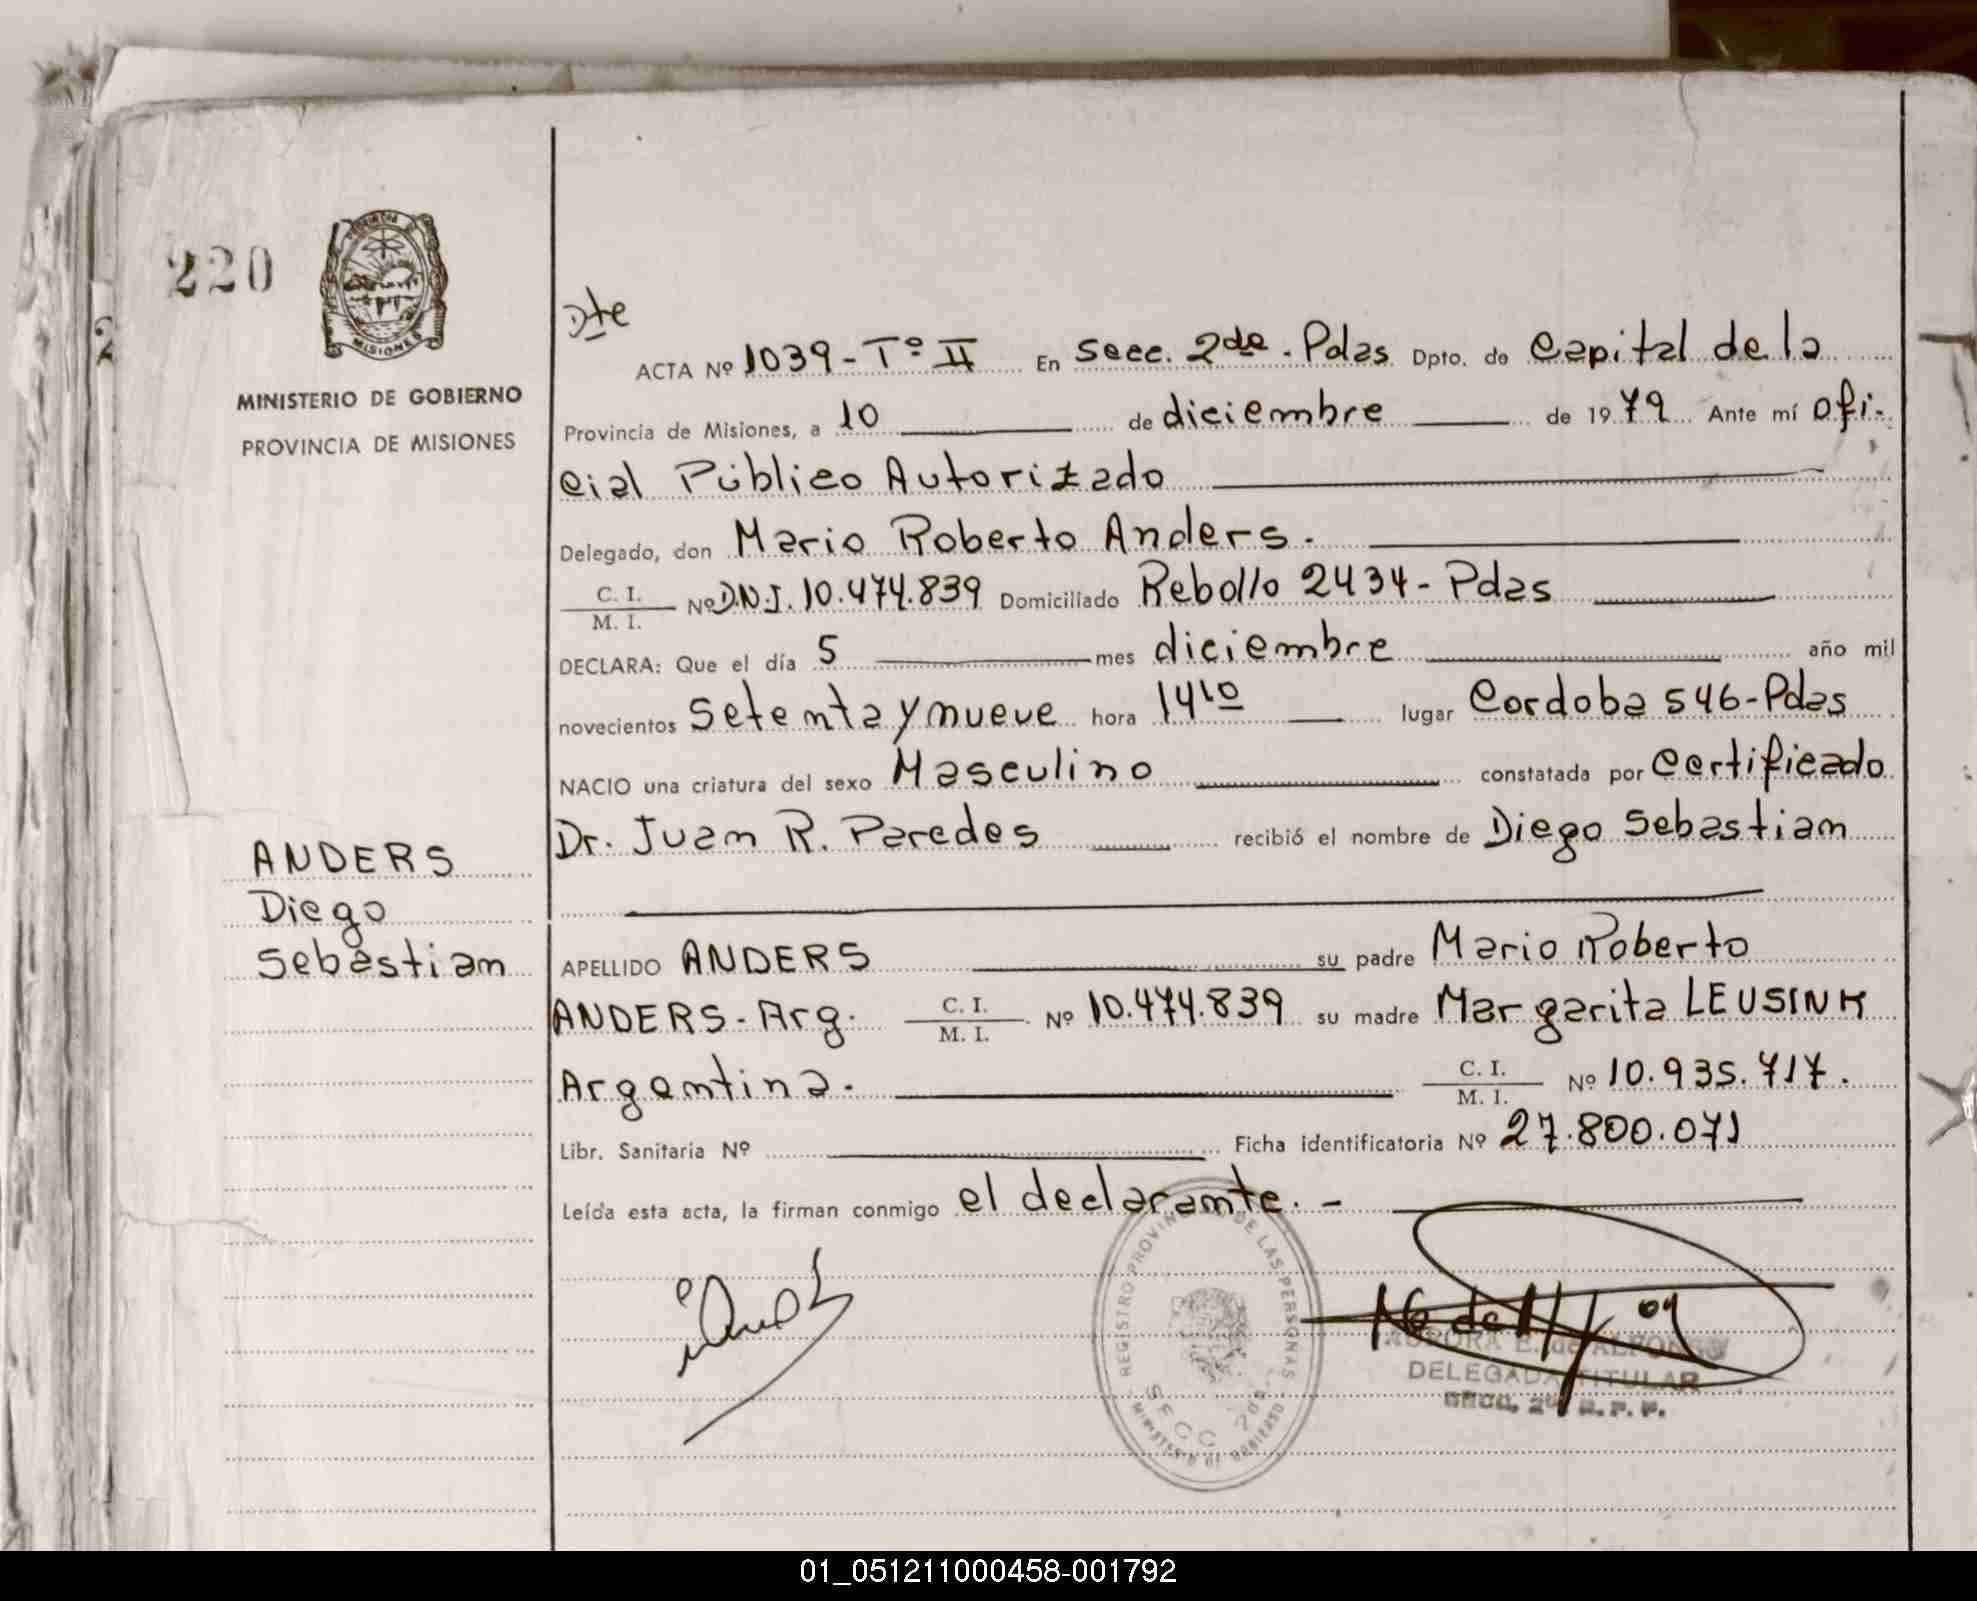 220
MISIONES
MINISTERIO DE GOBIERNO
PROVINCIA DE MISIONES
Dte
ACTA Nº 1039 - Tº II En Secc. 2da. Pdas Dpto. de Capital de la
Provincia de Misiones, a 10 de diciembre de 1979 Ante mí ofi-
cial Público Autorizado
Delegado, don Mario Roberto Anders.
C. I.
M. I. Nº D.N.I. 10.474.839 Domiciliado Rebollo 2434 - Pdas
DECLARA: Que el día 5 mes diciembre año mil
novecientos setenta y nueve hora 14 10 lugar Cordoba 546 - Pdas
NACIO una criatura del sexo Masculino constatada por Certificado
Dr. Juan R. Paredes recibió el nombre de Diego Sebastian
ANDERS
Diego
Sebastian
APELLIDO ANDERS su padre Mario Roberto
ANDERS - Arg. C. I.
M. I. Nº 10.474.839 su madre Margarita LEUSINK
Argentina. C. I.
M. I. Nº 10.935.717.
Libr. Sanitaria Nº Ficha identificatoria Nº 27.800.071
Leída esta acta, la firman conmigo el declarante. -
REGISTRO PROVINCIAL DE LAS PERSONAS
SECC 2da
MINISTERIO DE GOBIERNO
E. de ALFONSO
DELEGADA TITULAR
SECC. 2da R. P. P.
01_051211000458-001792